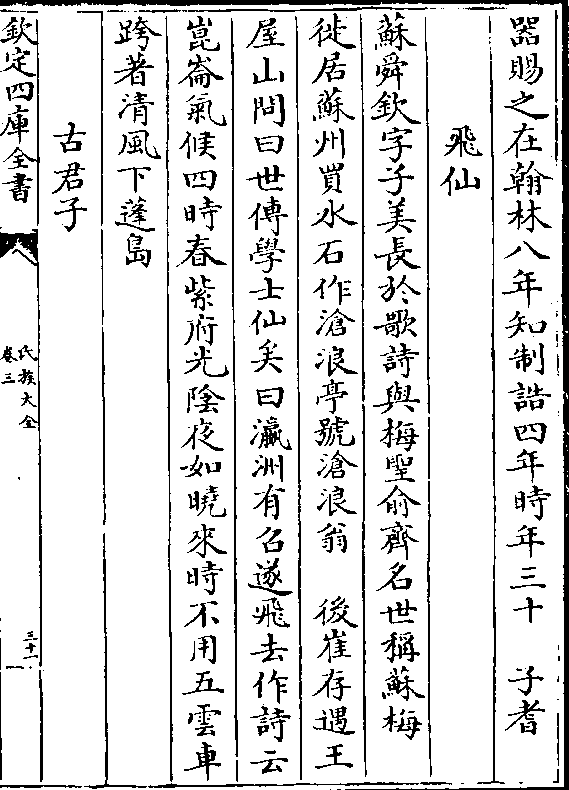 器賜之在翰林八年知制誥四年時年三十　子耆
飛仙
蘇舜欽字子美長於歌詩與梅聖俞齊名世稱蘇梅
徙居蘇州買水石作滄浪亭號滄浪翁　後崔存遇王
屋山問曰世傳學士仙矣曰瀛洲有召遂飛去作詩云
崑崙氣候四時春紫府光陰夜如曉來時不用五雲車
跨著清風下蓬島
古君子
欽定四庫全書
氏族大全
卷三
三十一